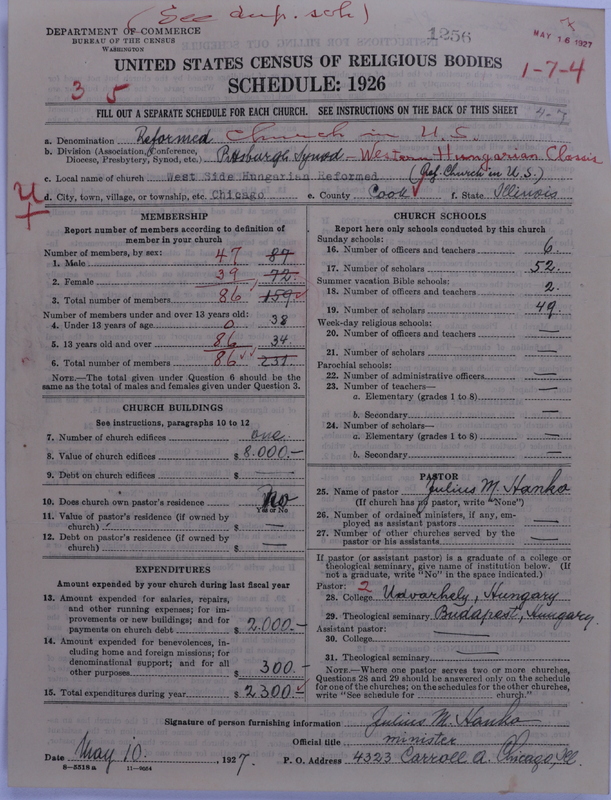 (See dup. sch)
DEPARTMENT OF COMMERCE
BUREAU OF THE CENSUS
WASHINGTON
1256
MAY 16 1927
UNITED STATES CENSUS OF RELIGIOUS BODIES
1-7-4
SCHEDULE: 1926
3 5
FILL OUT A SEPARATE SCHEDULE FOR EACH CHURCH. SEE INSTRUCTIONS ON THE BACK OF THIS SHEET
4-7
a. Denomination Reformed Church in U.S.
b. Division (Association, Conference, Diocese, Presbytery, Synod, etc.) Pittsburgh Synod - Western Hungarian Classis
c. Local name of church West Side Hungarian Reformed (Ref. Church in U.S.)
d. City, town, village, or township, etc. Chicago e. County Cook f. State Illinois
MEMBERSHIP
Report number of members according to definition of
member in your church
Number of members, by sex:
1. Male 47 87
2. Female 39 72
3. Total number of members 86 159
Number of members under and over 13 years old:
4. Under 13 years of age 0 38
5. 13 years old and over 86 34
6. Total number of members 86 231
NOTE.—The total given under Question 6 should be the
same as the total of males and females given under Question 3.
CHURCH BUILDINGS
See instructions, paragraphs 10 to 12
7. Number of church edifices one
8. Value of church edifices $ 8.000.-
9. Debt on church edifices $ —
10. Does church own pastor's residence No
Yes or No
11. Value of pastor's residence (if owned by
church) $ —
12. Debt on pastor's residence (if owned by
church) $ —
EXPENDITURES
Amount expended by your church during last fiscal year
13. Amount expended for salaries, repairs,
and other running expenses; for im-
provements or new buildings; and for
payments on church debt $ 2,000.-
14. Amount expended for benevolences, in-
cluding home and foreign missions; for
denominational support; and for all
other purposes $ 300.-
15. Total expenditures during year $ 2300.-
CHURCH SCHOOLS
Report here only schools conducted by this church
Sunday schools:
16. Number of officers and teachers 6
17. Number of scholars 52.
Summer vacation Bible schools:
18. Number of officers and teachers 2.
19. Number of scholars 49.
Week-day religious schools:
20. Number of officers and teachers —
21. Number of scholars —
Parochial schools:
22. Number of administrative officers —
23. Number of teachers—
a. Elementary (grades 1 to 8) —
b. Secondary —
24. Number of scholars—
a. Elementary (grades 1 to 8) —
b. Secondary —
PASTOR
25. Name of pastor Julius M. Hanko
(If church has no pastor, write "None")
26. Number of ordained ministers, if any, em-
ployed as assistant pastors —
27. Number of other churches served by the
pastor or his assistants —
If pastor (or assistant pastor) is a graduate of a college or
theological seminary, give name of institution below. (If
not a graduate, write "No" in the space indicated.)
Pastor: 2
28. College Udvarhely, Hungary
29. Theological seminary Budapest, Hungary.
Assistant pastor:
30. College —
31. Theological seminary —
NOTE.—Where one pastor serves two or more churches,
Questions 28 and 29 should be answered only on the schedule
for one of the churches; on the schedules for the other churches,
write "See schedule for ________ church."
Signature of person furnishing information Julius M. Hanko
Official title minister
Date May 10. , 1927. P. O. Address 4323 Carroll A. Chicago, Ill.
8—5518 a 11—9064